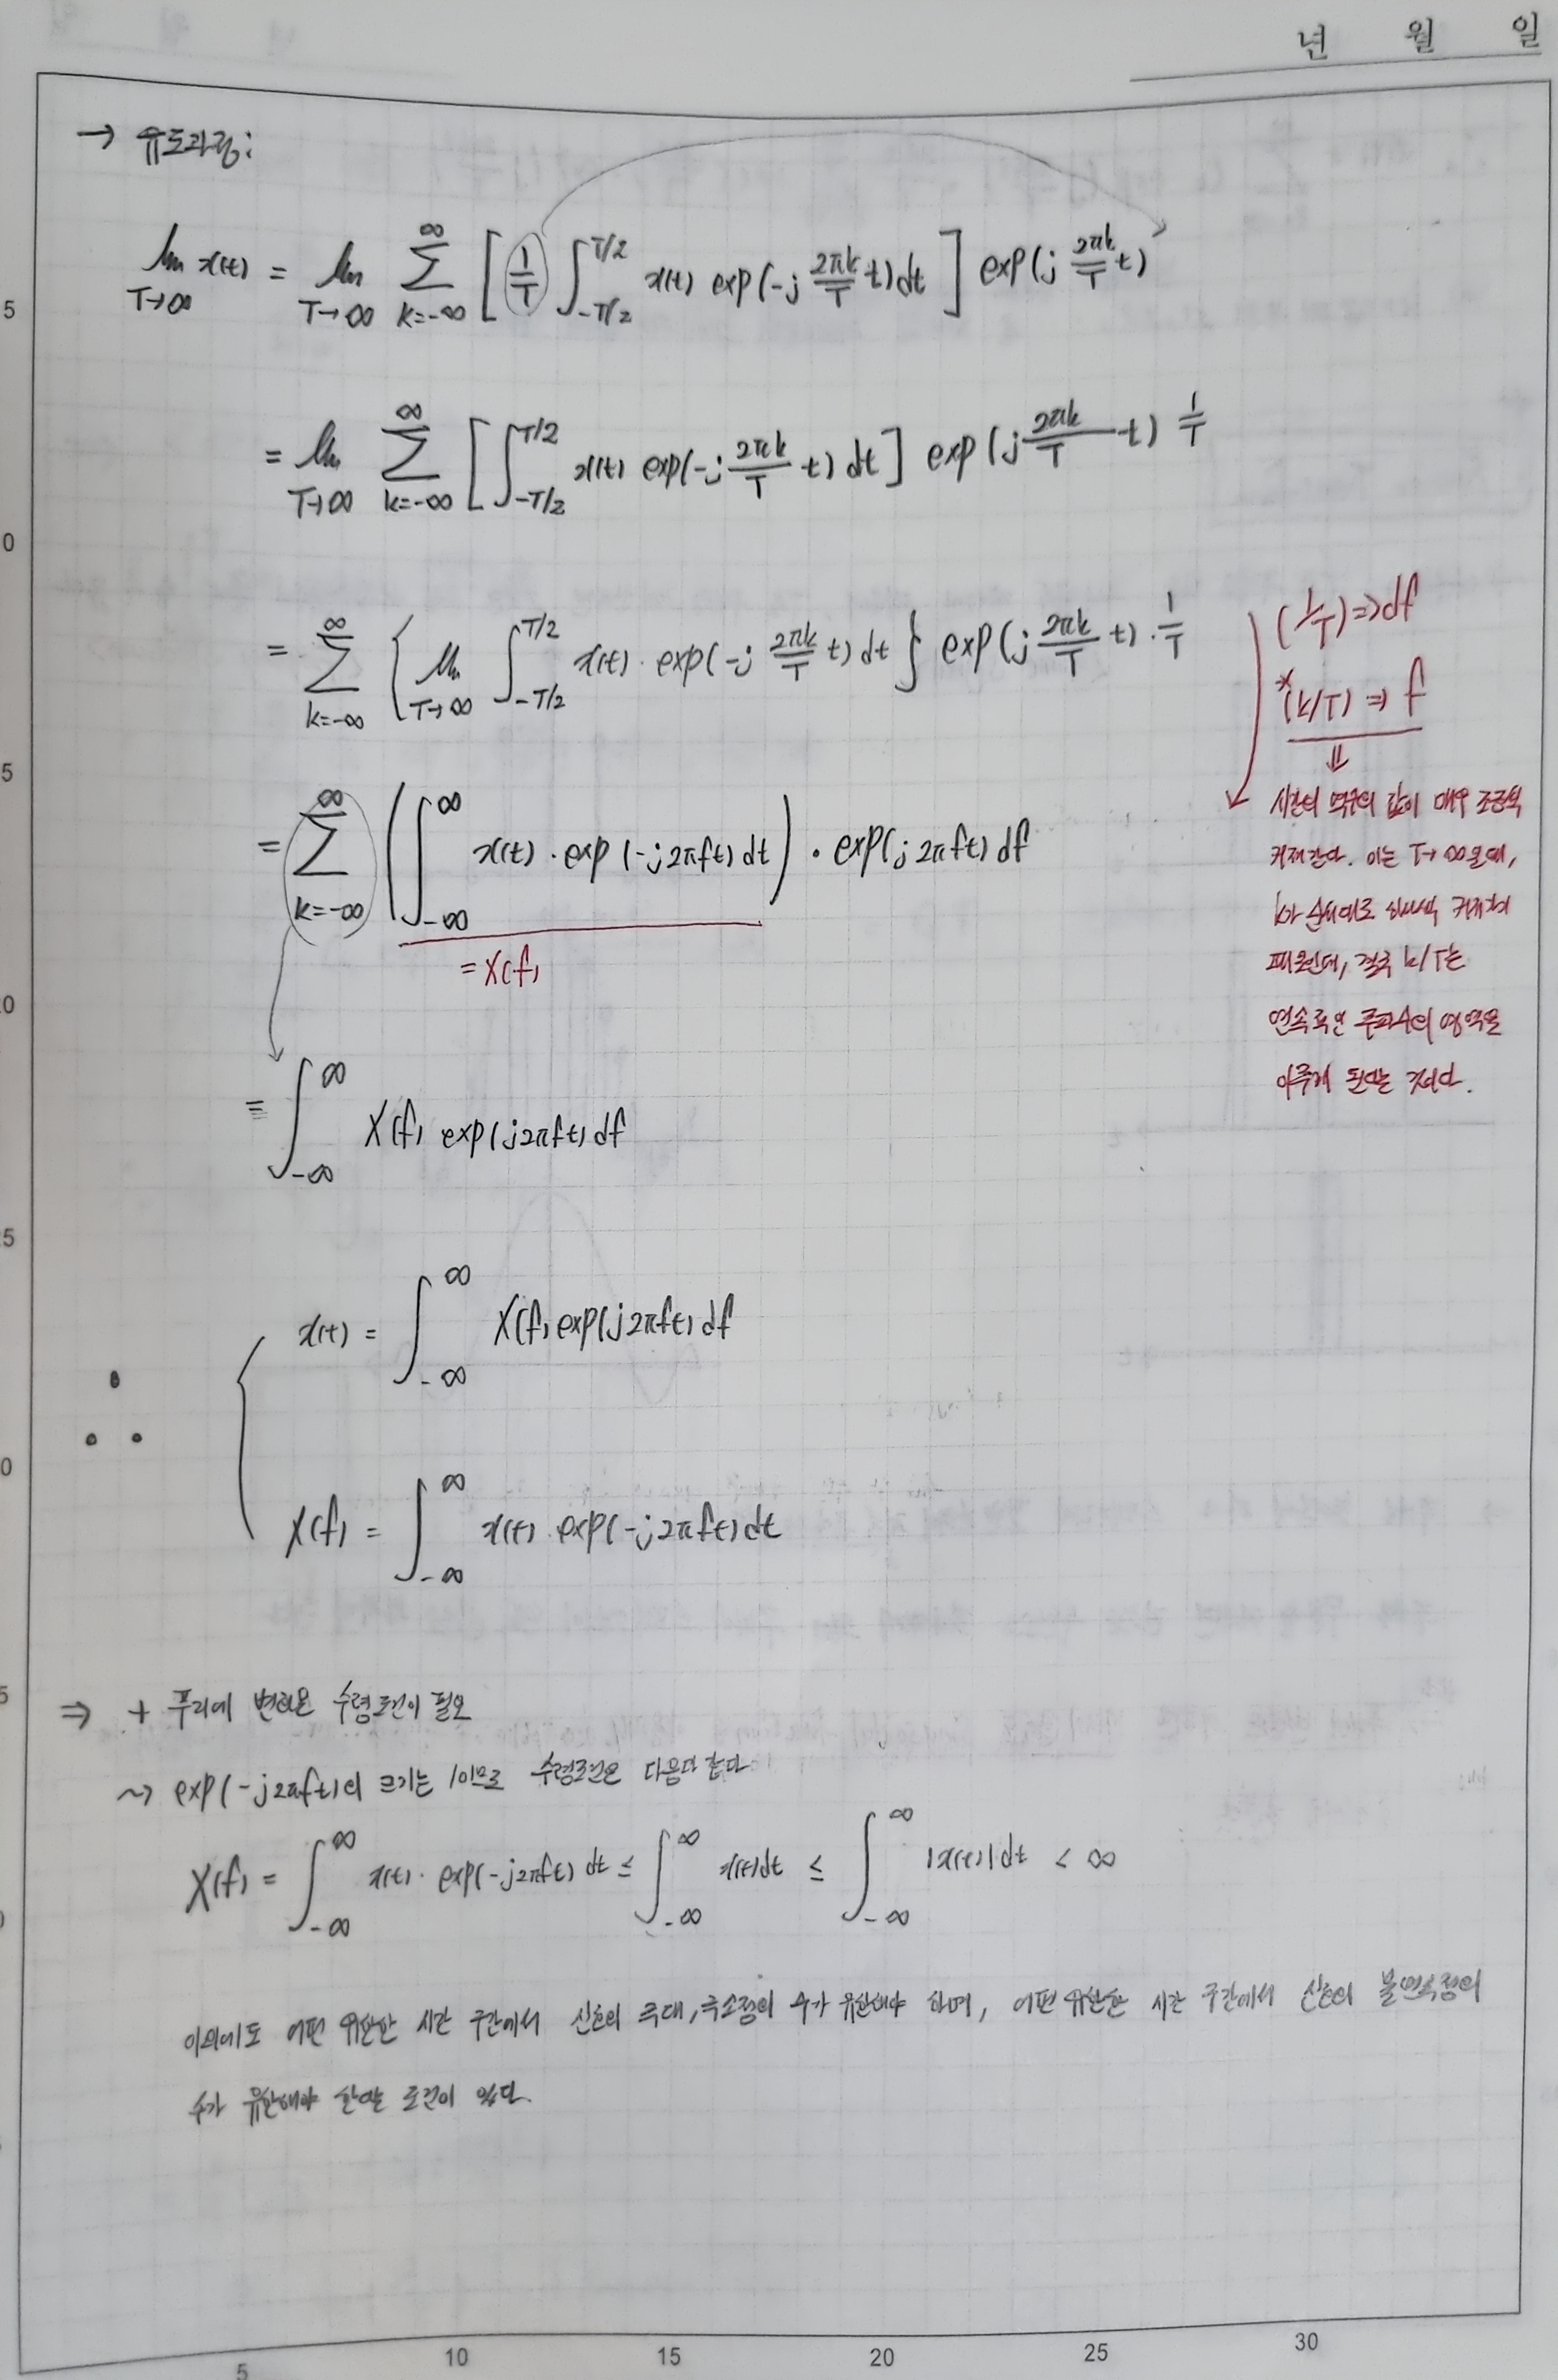 년 월 일
→ 유도과정:
lim T→∞ x(t) = lim T→∞ ∑ k=-∞ ∞ [ 1/T ∫ -T/2 T/2 x(t) exp(-j 2πk/T t) dt ] exp(j 2πk/T t)
= lim T→∞ ∑ k=-∞ ∞ [ ∫ -T/2 T/2 x(t) exp(-j 2πk/T t) dt ] exp(j 2πk/T t) 1/T
= ∑ k=-∞ ∞ { lim T→∞ ∫ -T/2 T/2 x(t) · exp(-j 2πk/T t) dt } exp(j 2πk/T t) · 1/T
(1/T) ⇒ df
*(k/T) ⇒ f
⇓
시간의 역수의 값이 매우 조금씩
커져간다. 이는 T→∞일때,
k가 순서대로 하나씩 커지기
때문인데, 결국 k/T는
연속적인 주파수의 영역을
이루게 된다는 것이다.
= ∑ k=-∞ ∞ ( ∫ -∞ ∞ x(t) · exp(-j2πft) dt ) · exp(j2πft) df
= X(f)
= ∫ -∞ ∞ X(f) exp(j2πft) df
∴ { x(t) = ∫ -∞ ∞ X(f) exp(j2πft) df
X(f) = ∫ -∞ ∞ x(t) exp(-j2πft) dt
⇒ + 푸리에 변환은 수렴조건이 필요
~> exp(-j2πft)의 크기는 1이므로 수렴조건은 다음과 같다
X(f) = ∫ -∞ ∞ x(t) · exp(-j2πft) dt ≤ ∫ -∞ ∞ x(t)dt ≤ ∫ -∞ ∞ |x(t)|dt < ∞
이외에도 어떤 유한한 시간 구간에서 신호의 극대, 극소점의 수가 유한해야 하며, 어떤 유한한 시간 구간에서 신호의 불연속점의
수가 유한해야 한다는 조건이 있다.
5
0
5
0
5
0
5
0
5 10 15 20 25 30